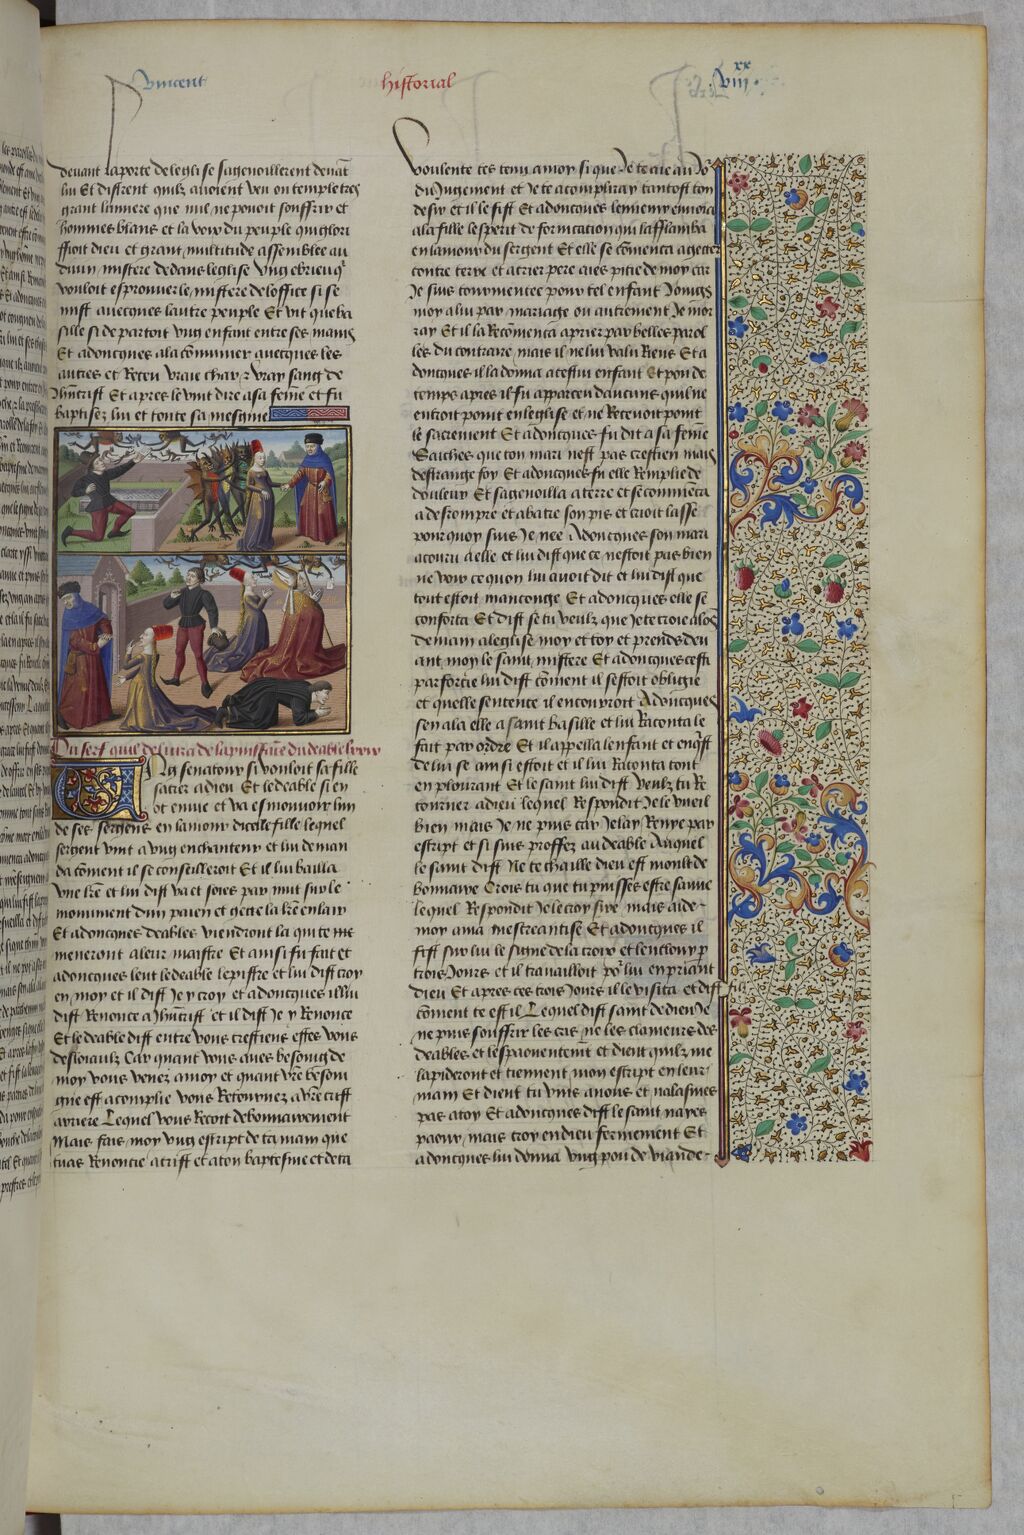 Vincent
historial
xx
viii
devant la porte de leglise sagenoillerent devāt
lui Et dissrent quilz avoient veu ou temple tres
grant lumiere que nul ne povoit souffrir et
hommes blans et la voix du peuple qui glori
ffioit dieu et grant multitude assemblee au
divin mistere dedans leglise Vng ebrieu qͥ
vouloit esprouver le mistere de loffice si se
mist avecques lautre peuple Et vit que ba
sille si departoit vng enfant entre ses mains
Et adoncques ala cōmunier avecques les
autres et Receu vraie char ⁊ vray sang de
Jhūcrist Et apres le vint dire a sa feme et fu
baptisez lui et toute sa mesgnie
Du serf quil delivra de la puissance du deable lxxv
Vng senatour si vouloit sa fille
sacrer a dieu Et le deable si en
ot envie et va esmouvoir lun
de ses sergens en lamour dicelle fille lequel
sergent vint a vng enchanteur et lui deman
da cōment il se conseilleroit Et il lui bailla
vne lrē et lui dist va et soies par nuit sur le
monument dun paien et gette la lrē en lair
Et adoncques deables viendront la qui te me
meneront a leur maistre Et ainsi fu fait et
adoncques leut le deable lepistre et lui dist croy
en moy et il dist Je y croy et adoncques il lui
dist Renonce a Jhūcrist et il dist Je y Renonce
Et le deable dist entre vous crestiens estes vous
desloiaulx Car quant vous aues besoing de
moy vous venez a moy et quant vrē besoin
gne est acomplie vous Retournez a vrē crist
arriere Lequel vous Recoit debonnairement
Mais fais moy vng escript de ta main que
tu as Renoncie a crist et a ton baptesme et de ta
voulente tes tenu a moy si que Je te aie au Joͬ
du Jugement et Je te acompliray tantost ton
desir et il le fist Et adoncques lennemy envoia
a la fille lesperit de fornicacion qui lafflamba
en lamour du sergent Et elle se cōmenca a getter
contre terre et a crier pere aies pitie de moy car
Je suis tourmentee pour tel enfant Joings
moy a lui par mariage ou autrement Je mor
ray Et il la Recōmenca a prier par belles parol
les du contraire mais il ne lui valu Riens Et a
doncques il la donna a cestui enfant Et pou de
temps apres il fu apparceu daucuns quil ne
entroit point en leglise et ne Recevoit point
le sacrement Et adoncques fu dit a sa feme
Saiches que ton mari nest pas crestien mais
destrange foy Et adoncques fu elle Remplie de
douleur Et sagenoilla a terre et se cōmenca
a desrompre et a batre son pis et crioit lasse
pourquoy suis Je nee Adoncques son mari
acouru a elle et lui dist que ce nestoit pas bien
ne voir ce quon lui avoit dit et lui dist que
tout estoit manconge Et adoncques elle se
conforta Et dist se tu veulz que Je te croie alōs
demain a leglise moy et toy et prends deu
ant moy le saint mistere Et adoncques cestui
par force lui dist cōment il sestoit obligie
et quelle sentence il encouroit Adoncques
sen ala elle a saint basille et lui Raconta le
fait par ordre Et il appella lenfant et enqͥst
de lui se ainsi estoit et il lui Raconta tout
en plourant Et le saint lui dist Veulz tu Re
tourner a dieu lequel Respondit Je le vueil
bien mais Je ne puis car Je lay Renye par
escript et si suis proffez au deable Auquel
le saint dist Ne te chaille dieu est moult de
bonnaire Crois tu que tu puisses estre sauve
lequel Respondit Je le croy sire mais aide
moy a ma mescreantise Et adoncques il
fist sur lui le signe de la croix et lencloux p̄
trois Jours et il travailloit poͬ lui en priant
dieu Et apres ces trois Jours il le visita et dist filz
cōment te est il Lequel dist saint de dieu Je
ne puis souffrir les cris ne les clameurs des
deables et lespaventement et dient quilz me
lapideront et tiennent mon escript en leur
main Et dient tu vins a nous et nalasmes
pas a toy Et adoncques dist le saint naies
paour mais croy en dieu fermement Et
adoncques lui donna vng pou de viande